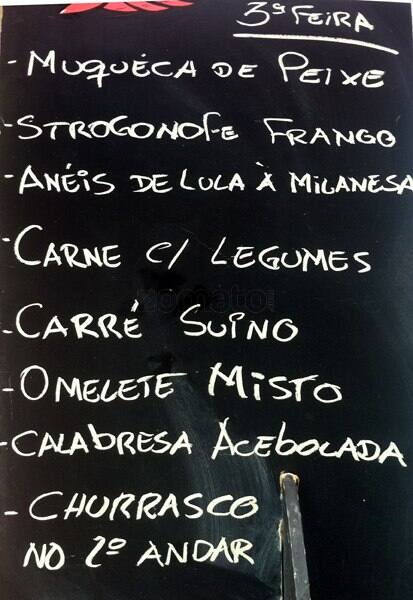 3ª FEIRA
- MUQUÉCA DE PEIXE
- STROGONOFE FRANGO
- ANÉIS DE LULA À MILANESA
- CARNE C/ LEGUMES
- CARRÉ SUÍNO
- OMELETE MISTO
- CALABRESA ACEBOLADA
- CHURRASCO
NO 2º ANDAR
zomato